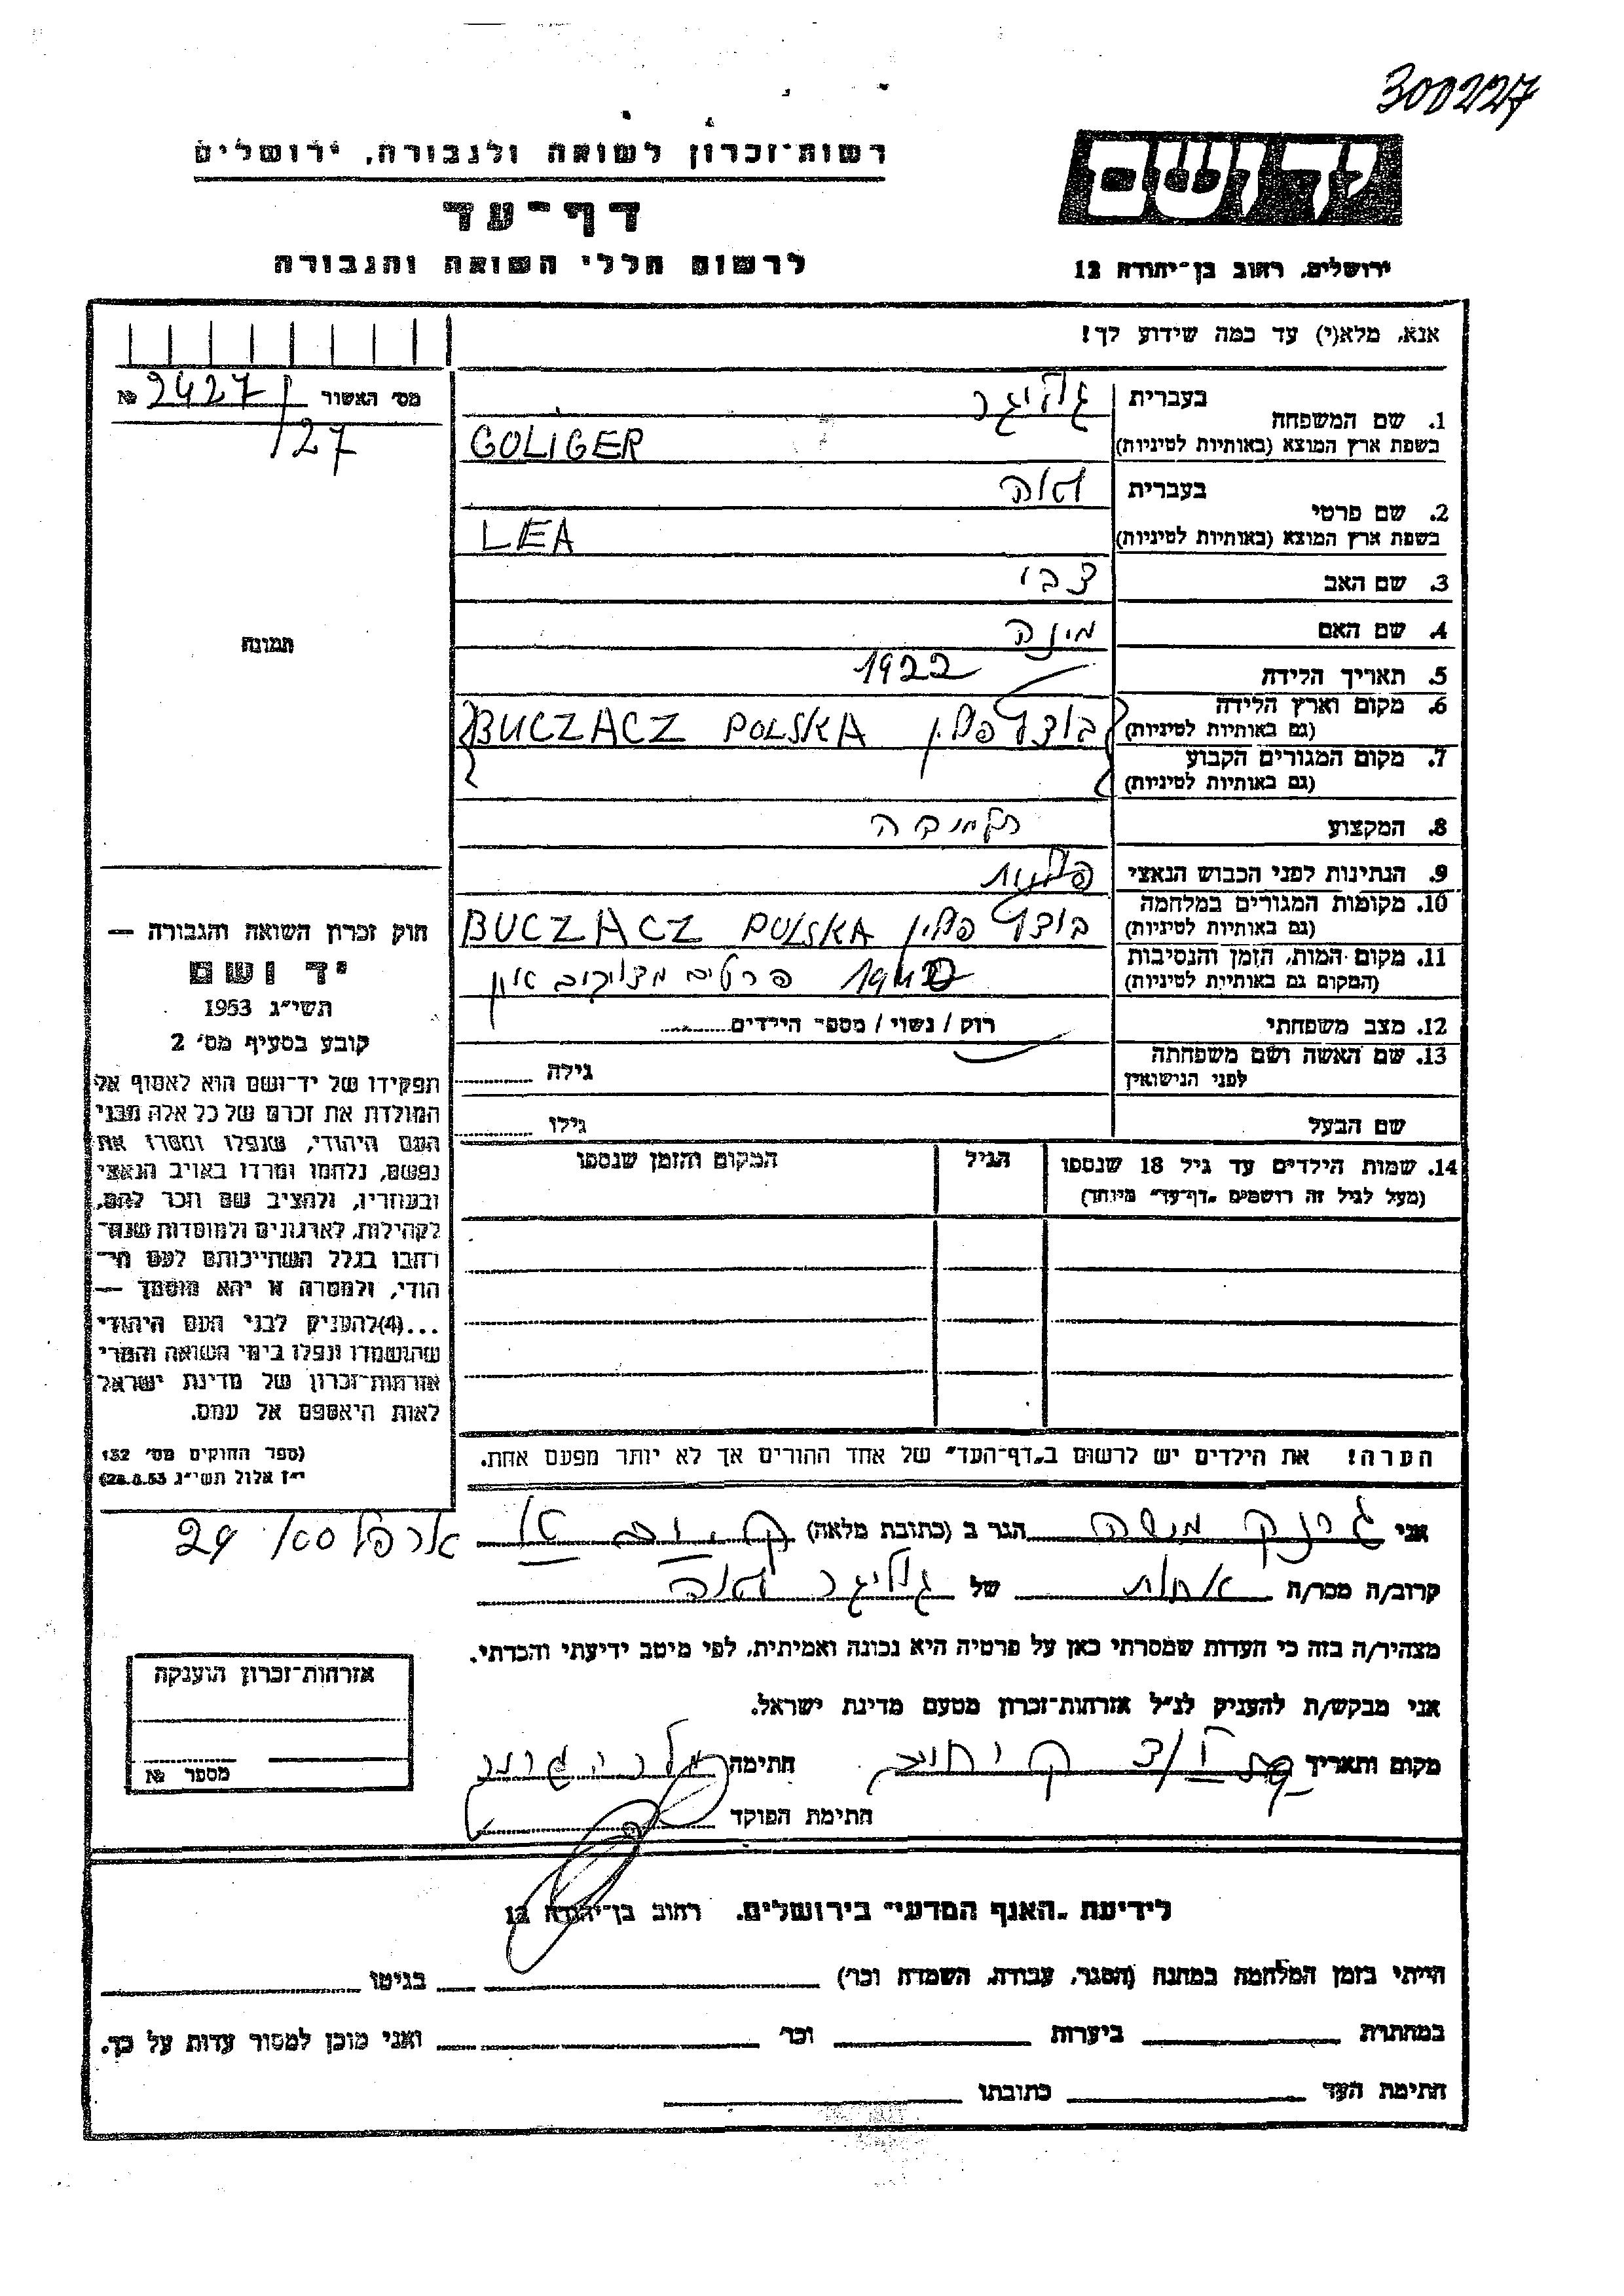 300227
רשות־זכרון לשואה ולגבורה, ירושלים
יד ושם
דף־עד
לרשום חללי השואה והגבורה
ירושלים, רחוב בן־יהודה 12
אנא, מלא(י) עד כמה שידוע לך!
מס׳ האשור № 2427/
127
1. שם המשפחה
בעברית גוליגר
בשפת ארץ המוצא (באותיות לטיניות) GOLIGER
2. שם פרטי
בעברית לאה
בשפת ארץ המוצא (באותיות לטיניות) LEA
3. שם האב צבי
4. שם האם מינה
5. תאריך הלידה 1922
6. מקום וארץ הלידה
(גם באותיות לטיניות) פולין BUCZACZ POLSKA
7. מקום המגורים הקבוע
(גם באותיות לטיניות)
8. המקצוע
9. הנתינות לפני הכבוש הנאצי פולנית
10. מקומות המגורים במלחמה
(גם באותיות לטיניות) פולין BUCZACZ POLSKA
11. מקום המות, הזמן והנסיבות
(המקום גם באותיות לטיניות) פרטים מדויקים אין
12. מצב משפחתי רוק / נשוי / מספר הילדים
13. שם האשה ושם משפחתה
לפני הנישואין גילה
שם הבעל גילו
14. שמות הילדים עד גיל 18 שנספו הגיל המקום והזמן שנספו
(מעל לגיל זה רושמים „דף־עד״ מיוחד)
הערה! את הילדים יש לרשום ב„דף־העד״ של אחד ההורים אך לא יותר מפעם אחת.
תמונה
חוק זכרון השואה והגבורה —
יד ושם
תשי״ג 1953
קובע בסעיף מס׳ 2
תפקידו של יד־ושם הוא לאסוף אל
המולדת את זכרם של כל אלה מבני
העם היהודי, שנפלו ומסרו את
נפשם, נלחמו ומרדו באויב הנאצי
ובעוזריו, ולהציב שם וזכר להם,
לקהילות, לארגונים ולמוסדות שנח־
רבו בגלל השתייכותם לעם הי־
הודי, ולמטרה זו יהא מוסמך —
...(4) להעניק לבני העם היהודי
שהושמדו ונפלו בימי השואה והמרי
אזרחות־זכרון של מדינת ישראל
לאות היאספם אל עמם.
(ספר החוקים מס׳ 132
י״ז אלול תשי״ג 28.8.53)
אני הגר ב (כתובת מלאה)
קרוב/ה מכר/ה אחות של גוליגר לאה
מצהיר/ה בזה כי העדות שמסרתי כאן על פרטיה היא נכונה ואמיתית, לפי מיטב ידיעתי והכרתי.
אני מבקש/ת להעניק לנ״ל אזרחות־זכרון מטעם מדינת ישראל.
מקום ותאריך חתימה
חתימת הפוקד
אזרחות־זכרון הוענקה
מספר №
לידיעת „האגף המדעי״ בירושלים. רחוב בן־יהודה 12
הייתי בזמן המלחמה במחנה (הסגר, עבודה, השמדה וכו׳) בגיטו
במחתרת ביערות וכו׳ ואני מוכן למסור עדות על כך.
חתימת העד כתובתו